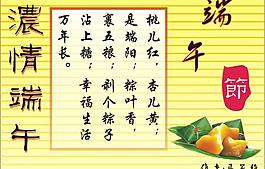 濃情端午
端午節
桃儿红，杏儿黄；
是端阳；粽叶香，
裹五粮；剥个粽子
沾上糖；幸福生活
万年长。